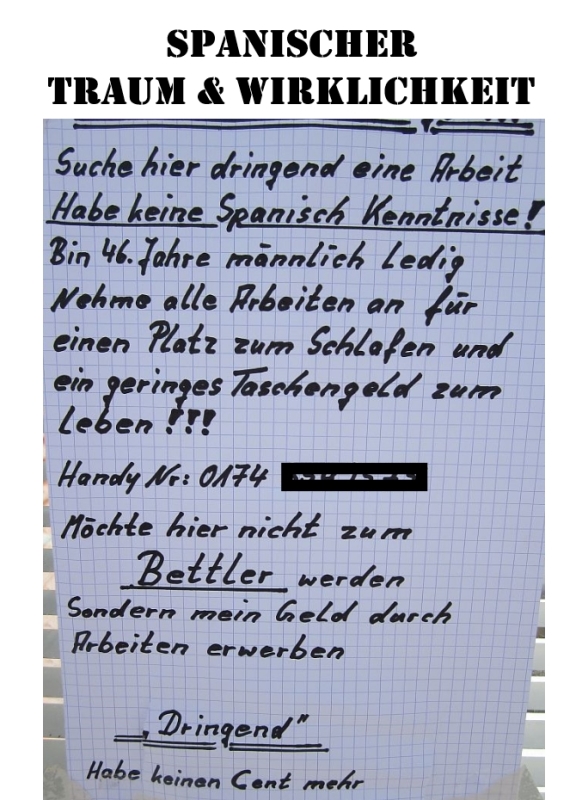 SPANISCHER
TRAUM & WIRKLICHKEIT
Suche hier dringend eine Arbeit
Habe keine Spanisch Kenntnisse!
Bin 46. Jahre männlich Ledig
Nehme alle Arbeiten an für
einen Platz zum Schlafen und
ein geringes Taschengeld zum
Leben !!!
Handy Nr: 0174
Möchte hier nicht zum
Bettler werden
Sondern mein Geld durch
Arbeiten erwerben
„Dringend"
Habe keinen Cent mehr